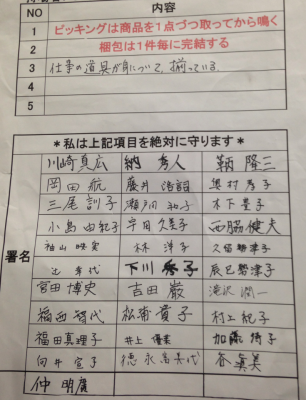 NO 内容
1 ピッキングは商品を1点づつ取ってから鳴く
2 梱包は1件毎に完結する
3 仕事の道具が身について、揃っている。
4
5
*私は上記項目を絶対に守ります*
署名
川崎真広 納 秀人 鞆 隆三
岡田 航 藤井 奥村秀子
三尾訓子 瀬戸内 和子 木下 景子
小島由紀子 宇田久美子 西脇健夫
袖山 映実 林 洋子 久留勢津子
辻 寿代 下川 秀子 辰巳勢津子
宮田 博史 吉田 巌 滝沢 潤一
福西智代 松浦 貴子 村上紀子
福田真理子 井上 優美 加藤 綾子
向井 宣子 徳永喜美代 谷 眞美
仲 明廣